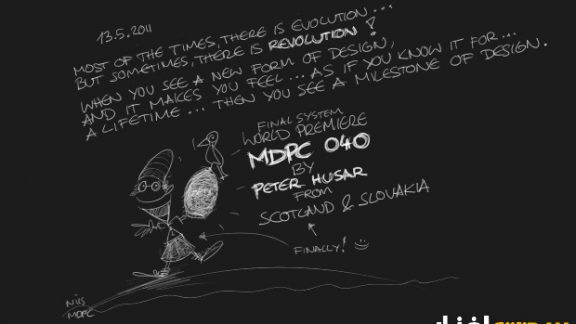 13.5.2011
MOST OF THE TIMES, THERE IS EVOLUTION...
BUT SOMETIMES, THERE IS REVOLUTION!
WHEN YOU SEE A NEW FORM OF DESIGN,
AND IT MAKES YOU FEEL... AS IF YOU KNOW IT FOR...
A LIFETIME... THEN YOU SEE A MILESTONE OF DESIGN.
FINAL SYSTEM
WORLD PREMIERE
MDPC 040
BY
PETER HUSAR
FROM
SCOTLAND & SLOVAKIA
FINALLY! :)
NILS
MDPC